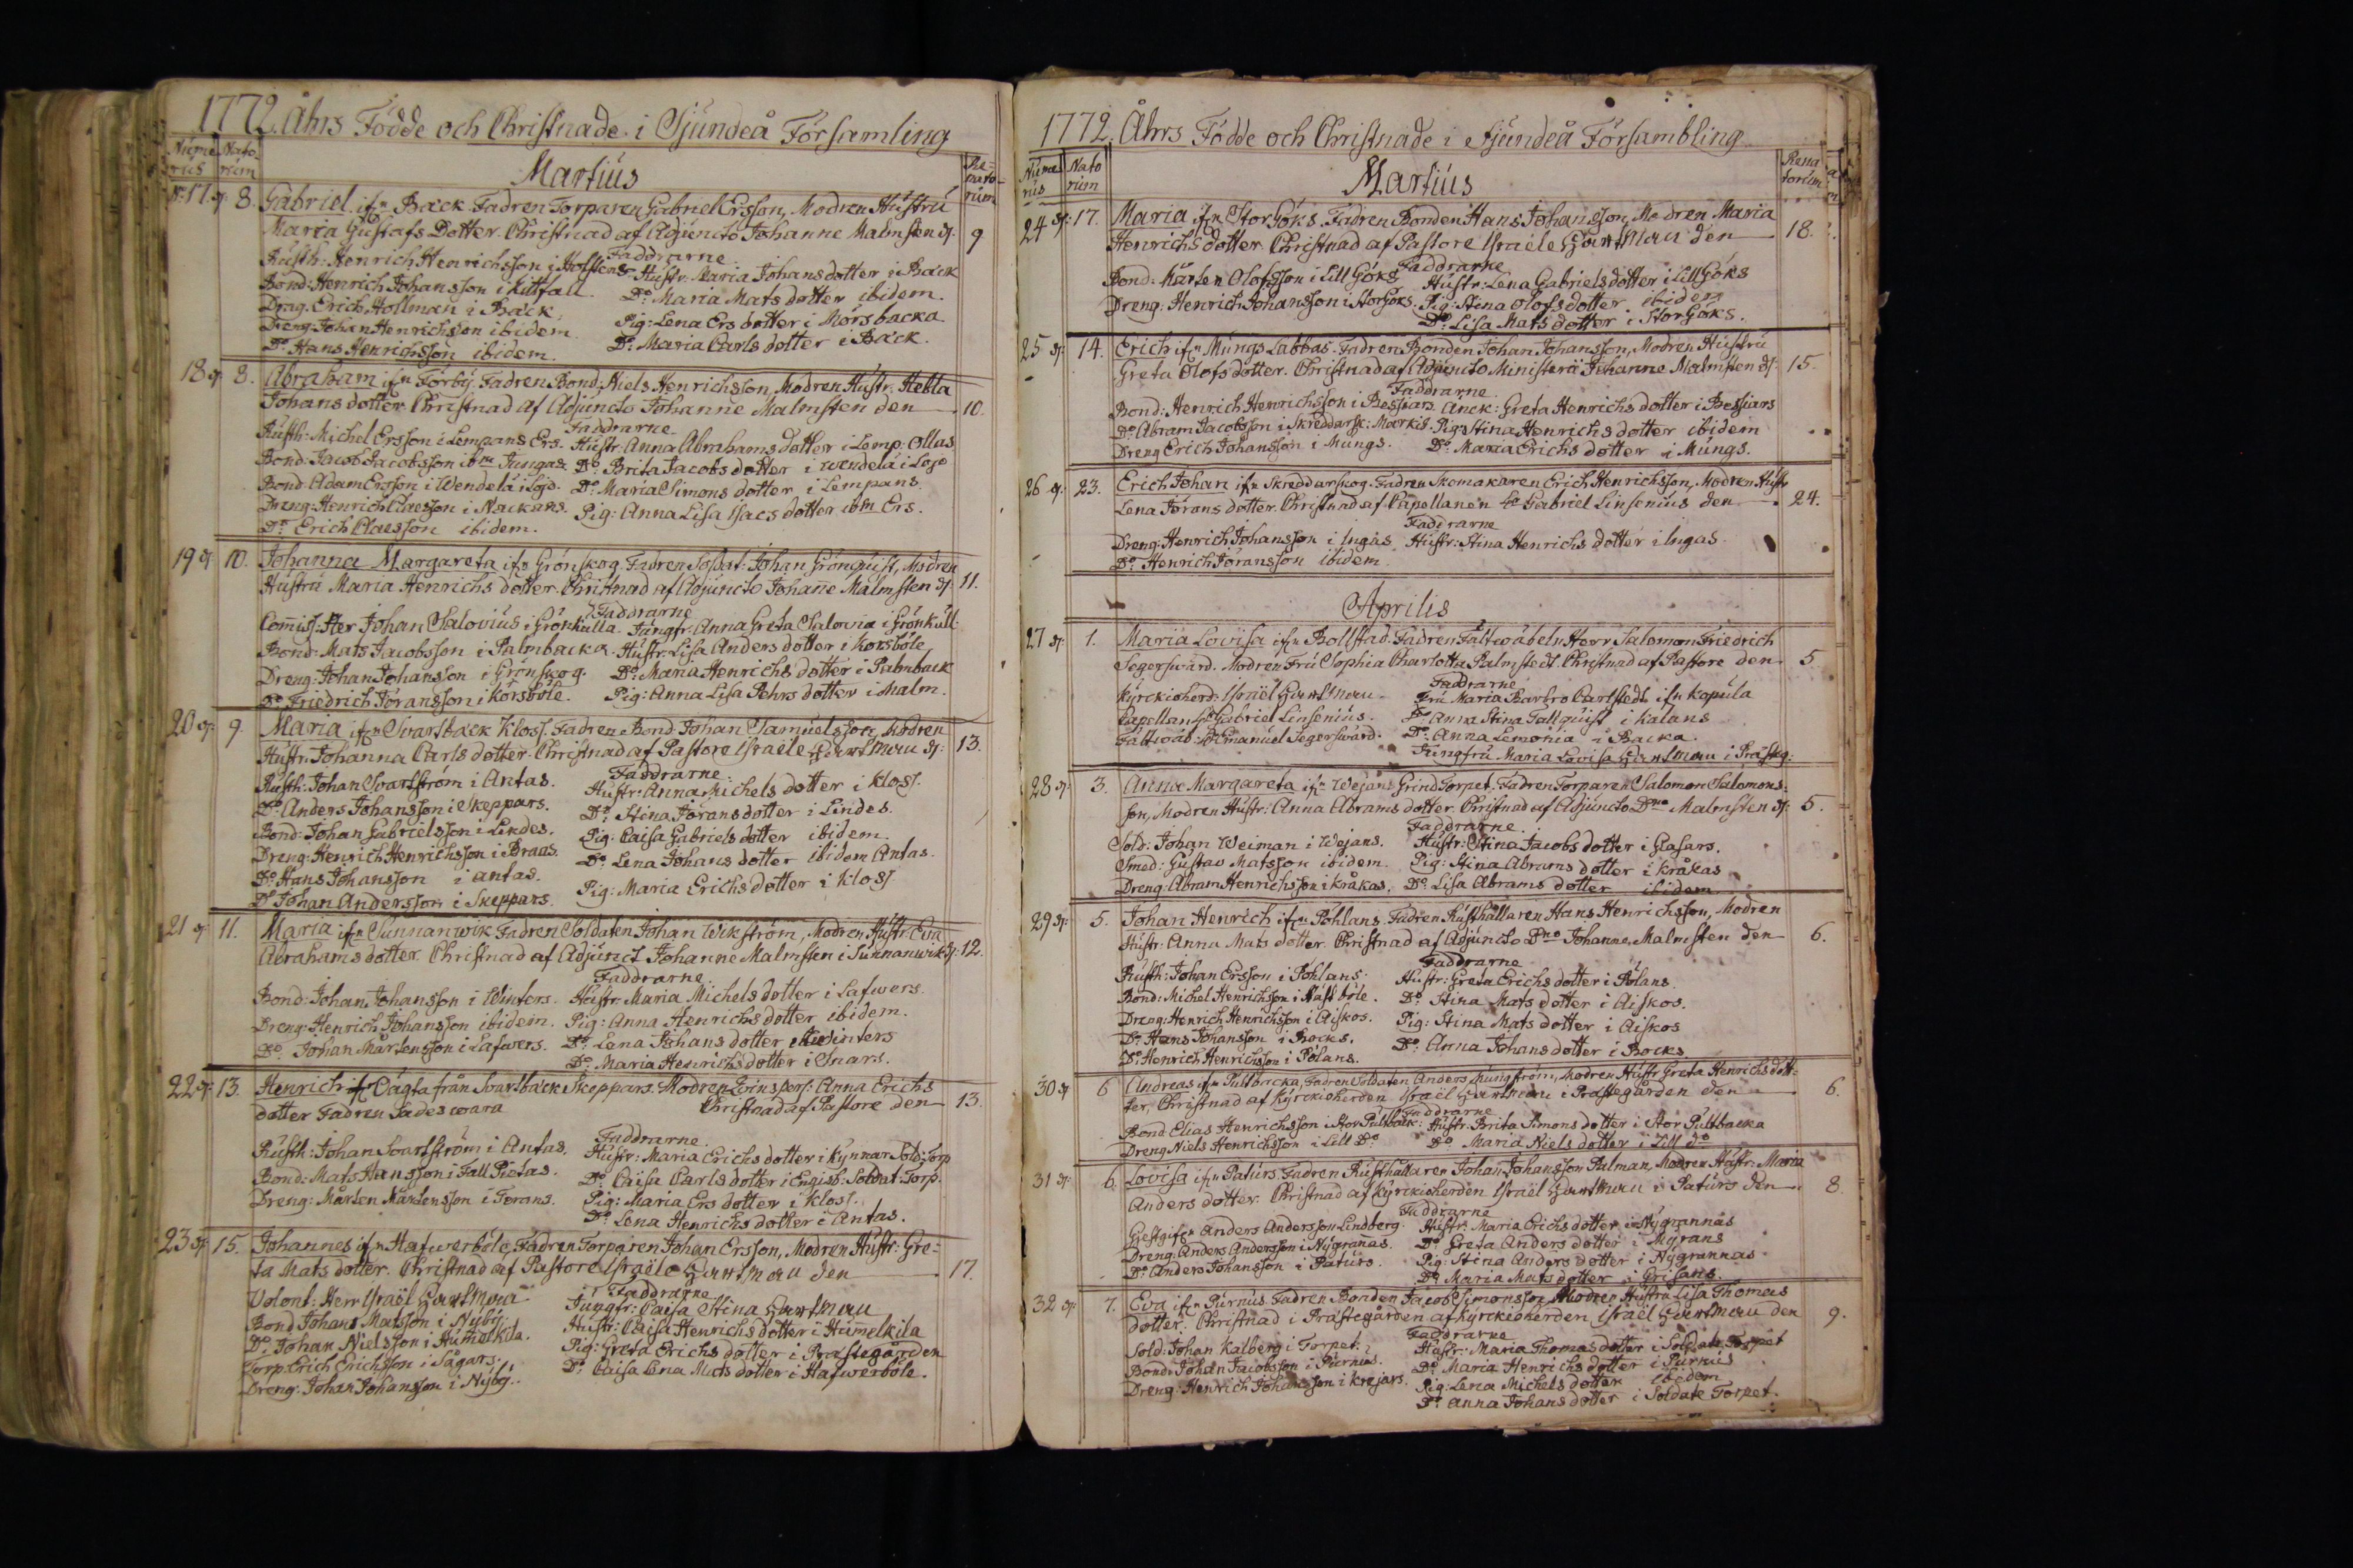 1772. Åhrs Födde och Christnade i Sjundeå Församling
Nume Nato- Re=
rus rum Martius nato
rum
N: 17 d: 8. Gabriel ifrn Bäck. Fadren Torparen Gabriel Ersson, Modren Hustru
Maria Gustafs Dotter. Christnad af Adjuncto Johanne Malmsten d: 9
Faddrarne
Rusth: Henrich Henrichsson i Hofslens Hustr: Maria Johans dotter i Bäck
Bond: Henrich Johansson i Kittfall. Do: Maria Mats dotter ibidem.
Drag. Erich Hollman i Bäck. Pig: Lena Ers dotter i Morsbacka
Dreng: Johan Henrichsson ibidem. Do: Maria Carls dotter i Bäck.
Do: Hans Henrichsson ibidem.
18 d: 8. Abraham ifrn Förby. Fadren Bond: Niels Henrichsson, Modren Hustr: Hebla
Johans dotter. Christnad af Adjuncto Johanne Malmsten den 10.
Faddrarne
Rusth: Michel Ersson i Lempans Ers. Hustr: Anna Abrahams dotter i Lemp: Ollas
Bond: Jacob Jacobsson ibm Jungas. Do: Brita Jacobs dotter i Wendelä i Lojo
Bond: Adam Ersson i Wendelä i Lojo. Do: Maria Simons dotter i Lempans.
Dreng: Henrich Claesson i Nackans. Pig: Anna Lisa Isacs dotter ibm Ers.
Do: Erich Claesson ibidem.
19 d: 10. Johanna Margareta ifrn Grönskog. Fadren Soldat: Johan Grönquist, Modren
Hustru Maria Henrichs dotter. Christnad af Adjuncto Johane Malmsten d: 11.
Faddrarne
Comiss: Her Johan Salovius i Grönkulla. Jungfr: Anna Greta Salovia i Grönkull:
Bond: Mats Jacobsson i Palmbacka. Hustr: Lisa Anders dotter i Korsböle
Dreng: Johan Johansson i Grönskog. Do: Maria Henrichs dotter i Palmback
Do: Friedrich Jöransson i Korsböle. Pig: Anna Lisa Pehrs dotter i Malm.
20 d: 9. Maria ifrn Svartbäck Kloss. Fadren Bond: Johan Samuelsson, Modren
Hustr: Johanna Carls dotter. Christnad af Pastore Israele Hartman d: 13.
Faddrarne
Rusth: Johan Svartström i Antas. Hustr: Anna Michels dotter i Kloss.
Do: Anders Johansson i Skeppars. Do: Stina Jörans dotter i Lindes.
Bond: Johan Gabrielsson i Lindes. Pig: Caisa Gabriels dotter ibidem.
Dreng: Henrich Henrichsson i Braas. Do: Lena Johans dotter ibidem Antas.
Do: Hans Johansson i Antas. Pig: Maria Erichs dotter i Kloss
Do: Johan Andersson i Skeppars.
21 d: 11. Maria ifrn Sunnanwik Fadren Soldaten Johan Wikström, Modren Hustr: Eva
Abrahams dotter. Christnad af Adjunct Johanne Malmsten i Sunnanwik d: 12.
Faddrarne
Bond: Johan Johansson i Winters. Hustr: Maria Michels dotter i Lafwers.
Dreng: Henrich Johansson ibidem. Pig: Anna Henrichs dotter ibidem.
Do: Johan Mårtensson i Lafwers. Do: Lena Johans dotter i Winters
Do: Maria Henrichs dotter i Snars.
22 d: 13. Henrich oägta från Svartbäck Skeppars. Modren Qvinspers: Anna Erichs
dotter Fadren Sades wara Christnad af Pastore den 13.
Faddrarne
Rusth: Johan Svartström i Antas. Hustr: Maria Erichs dotter i Kynnar Sold: Torp
Bond: Mats Hansson i Fall Pietas. Do: Caisa Carls dotter i Engisb: Soldat: Torp.
Dreng: Mårten Mårtensson i Förans. Pig: Maria Ers dotter i Kloss.
Do: Lena Henrichs dotter i Antas.
23 d: 15. Johannes ifrn Hafwerböle, Fadren Torparen Johan Ersson, Modren Hustr: Gre=
ta Mats dotter. Christnad af Pastore Israële Hartman den 17.
Faddrarne
Volont: Herr Israël Hartman Jungfr: Caisa Stina Hartman
Bond Johans Matsson i Nyby. Hustr: Caisa Henrichs dotter i Humelkila
Do: Johan Nielsson i Humelkila. Pig: Greta Erichs dotter i Prästegården
Torp: Erich Erichsson i Sågars. Do: Caisa Lena Mats dotter i Hafwerböle.
Dreng: Johan Johansson i Nyby.
1772. Åhrs Födde och Christnade i Sjundeå Försambling
Nume Nato Rena
rus rum Martius torum
24 d: 17. Maria ifrn StorGöks. Fadren Bonden Hans Johansson, Modren Maria
Henrichs dotter. Christnad af Pastore Israele Hartman den 18.
Faddrarne
Bond: Mårten Olofsson i Lill Göks Hustr: Lena Gabriels dotter i Lill Göks
Dreng: Henrich Johansson i StorGöks. Pig: Stina Olofs dotter ibidem
Do: Lisa Mats dotter i Stor Göks.
25 d: 14. Erich ifrn Mungs Labbas. Fadren Bonden Johan Johansson, Modren Hustru
Greta Olofs dotter. Christnad af Adjuncto Ministerii Johanne Malmsten d: 15.
Faddrarne
Bond: Henrich Henrichsson i Bessiars. Anck: Greta Henrichs dotter i Bessiars
Do: Abram Jacobsson i Skreddarsk: Markis. Pig: Stina Henrichs dotter ibidem
Dreng Erich Johansson i Mungs. Do: Maria Erichs dotter i Mungs.
26 d: 23. Erich Johan ifrn Skreddarskog. Fadren Skomakaren Erich Henrichsson, Modren Hustr
Lena Jörans dotter. Christnad af Capellanen Gabriel Linsenius den 24.
Faddrarne
Dreng: Henrich Johansson i Ingas Hustr: Stina Henrichs dotter i Ingas.
Do: Henrich Jöransson ibidem.
Aprilis
27 d: 1. Maria Lovisa ifrn Bollstad. Fadren Fältwäbeln Herr Salomon Friedrich
Segerswärd. Modren Fru Sophia Charlotta Palmstedt. Christnad af Pastore den 5.
Faddrarne
Kyrckioherd: Israël Hartman. Fru Maria Barbro Carlstedt ifrn Kopula
Capellan Hr Gabriel Linsenius. Do: Anna Stina Tallquist i Kalans
Fältwäb: Emanuel Segerswärd. Do: Anna Lemonia i Backa.
Jungfru Maria Lovisa Hartman i Prästg:
28 d: 3. Anna Margareta ifrn Wejans Grind Torpet. Fadren Torparen Salomon Salomons:
son, Modren Hustr: Anna Abrams dotter. Christnad af Adjuncto Dno Malmsten d: 5.
Faddrarne.
Sold: Johan Weiman i Wejans. Hustr: Stina Jacobs dotter i Glasars.
Smed: Gustav Matsson ibidem. Pig: Stina Abrams dotter i Kråkas
Dreng: Abram Henrichsson i Kråkas. Do: Lisa Abrams dotter ibidem
29 d: 5. Johan Henrich ifrn Pohlans. Fadren Rusthållaren Hans Henrichsson, Modren
Hustr: Anna Mats dotter. Christnad af Adjuncto Dno Johanne Malmsten den 6.
Faddrarne
Rusth: Johan Ersson i Pohlans. Hustr: Greta Erichs dotter i Polans.
Bond: Michel Henrichsson i Näst böle. Do: Stina Mats dotter i Aiskos.
Dreng: Henrich Henrichsson i Aiskos. Pig: Stina Mats dotter i Aiskos
Do: Hans Johansson i Bocks. Do: Anna Johans dotter i Bocks
Do: Henrich Henrichsson i Polans.
30 d: 6 Andreas ifrn Pultbacka, Fadren Soldaten Anders Mungström, Modren Hustr Greta Henrichs dott:
ter, Christnad af Kyrckioherden Israël Hartman i Prästegården den 6.
Faddrarne
Bond Elias Henrichsson i Stor Pultback: Hustr: Brita Simons dotter i Stor Pultbacka
Dreng Niels Henrichsson i Lill Do Do: Maria Niels dotter i Lill do
31 d: 6. Lovisa ifrn Paturs. Fadren Rusthållaren Johan Johansson Palman, Modren Hustr: Maria
Anders dotter. Christnad af Kyrckioherden Israël Hartman i Paturs den 8.
Faddrarne
Gjestgifrn Anders Andersson Lindberg. Hustr: Maria Erichs dotter i Nygrannas
Dreng: Anders Andersson i Nygrannas. Do: Greta Anders dotter i Myrans
Do: Anders Johansson i Paturs. Pig: Stina Anders dotter i Nygrannas
Do: Maria Mats dotter i Grisans.
32 d: 7. Eva ifrn Purnus. Fadren Bonden Jacob Simonsson, Modren Hustru Lisa Thomas
dotter. Christnad i Prästegården af Kyrckioherden Israël Hartman den 9.
Faddrarne
Sold: Johan Kalberg i Torpet. Hustr: Maria Thomas dotter i Soldate Torpet
Bond: Johan Jacobsson i Purnus. Do: Maria Henrichs dotter i Purnus
Dreng: Henrich Johansson i Krejars. Pig: Lena Michels dotter ibidem
Do: Anna Johans dotter i Soldate Torpet.